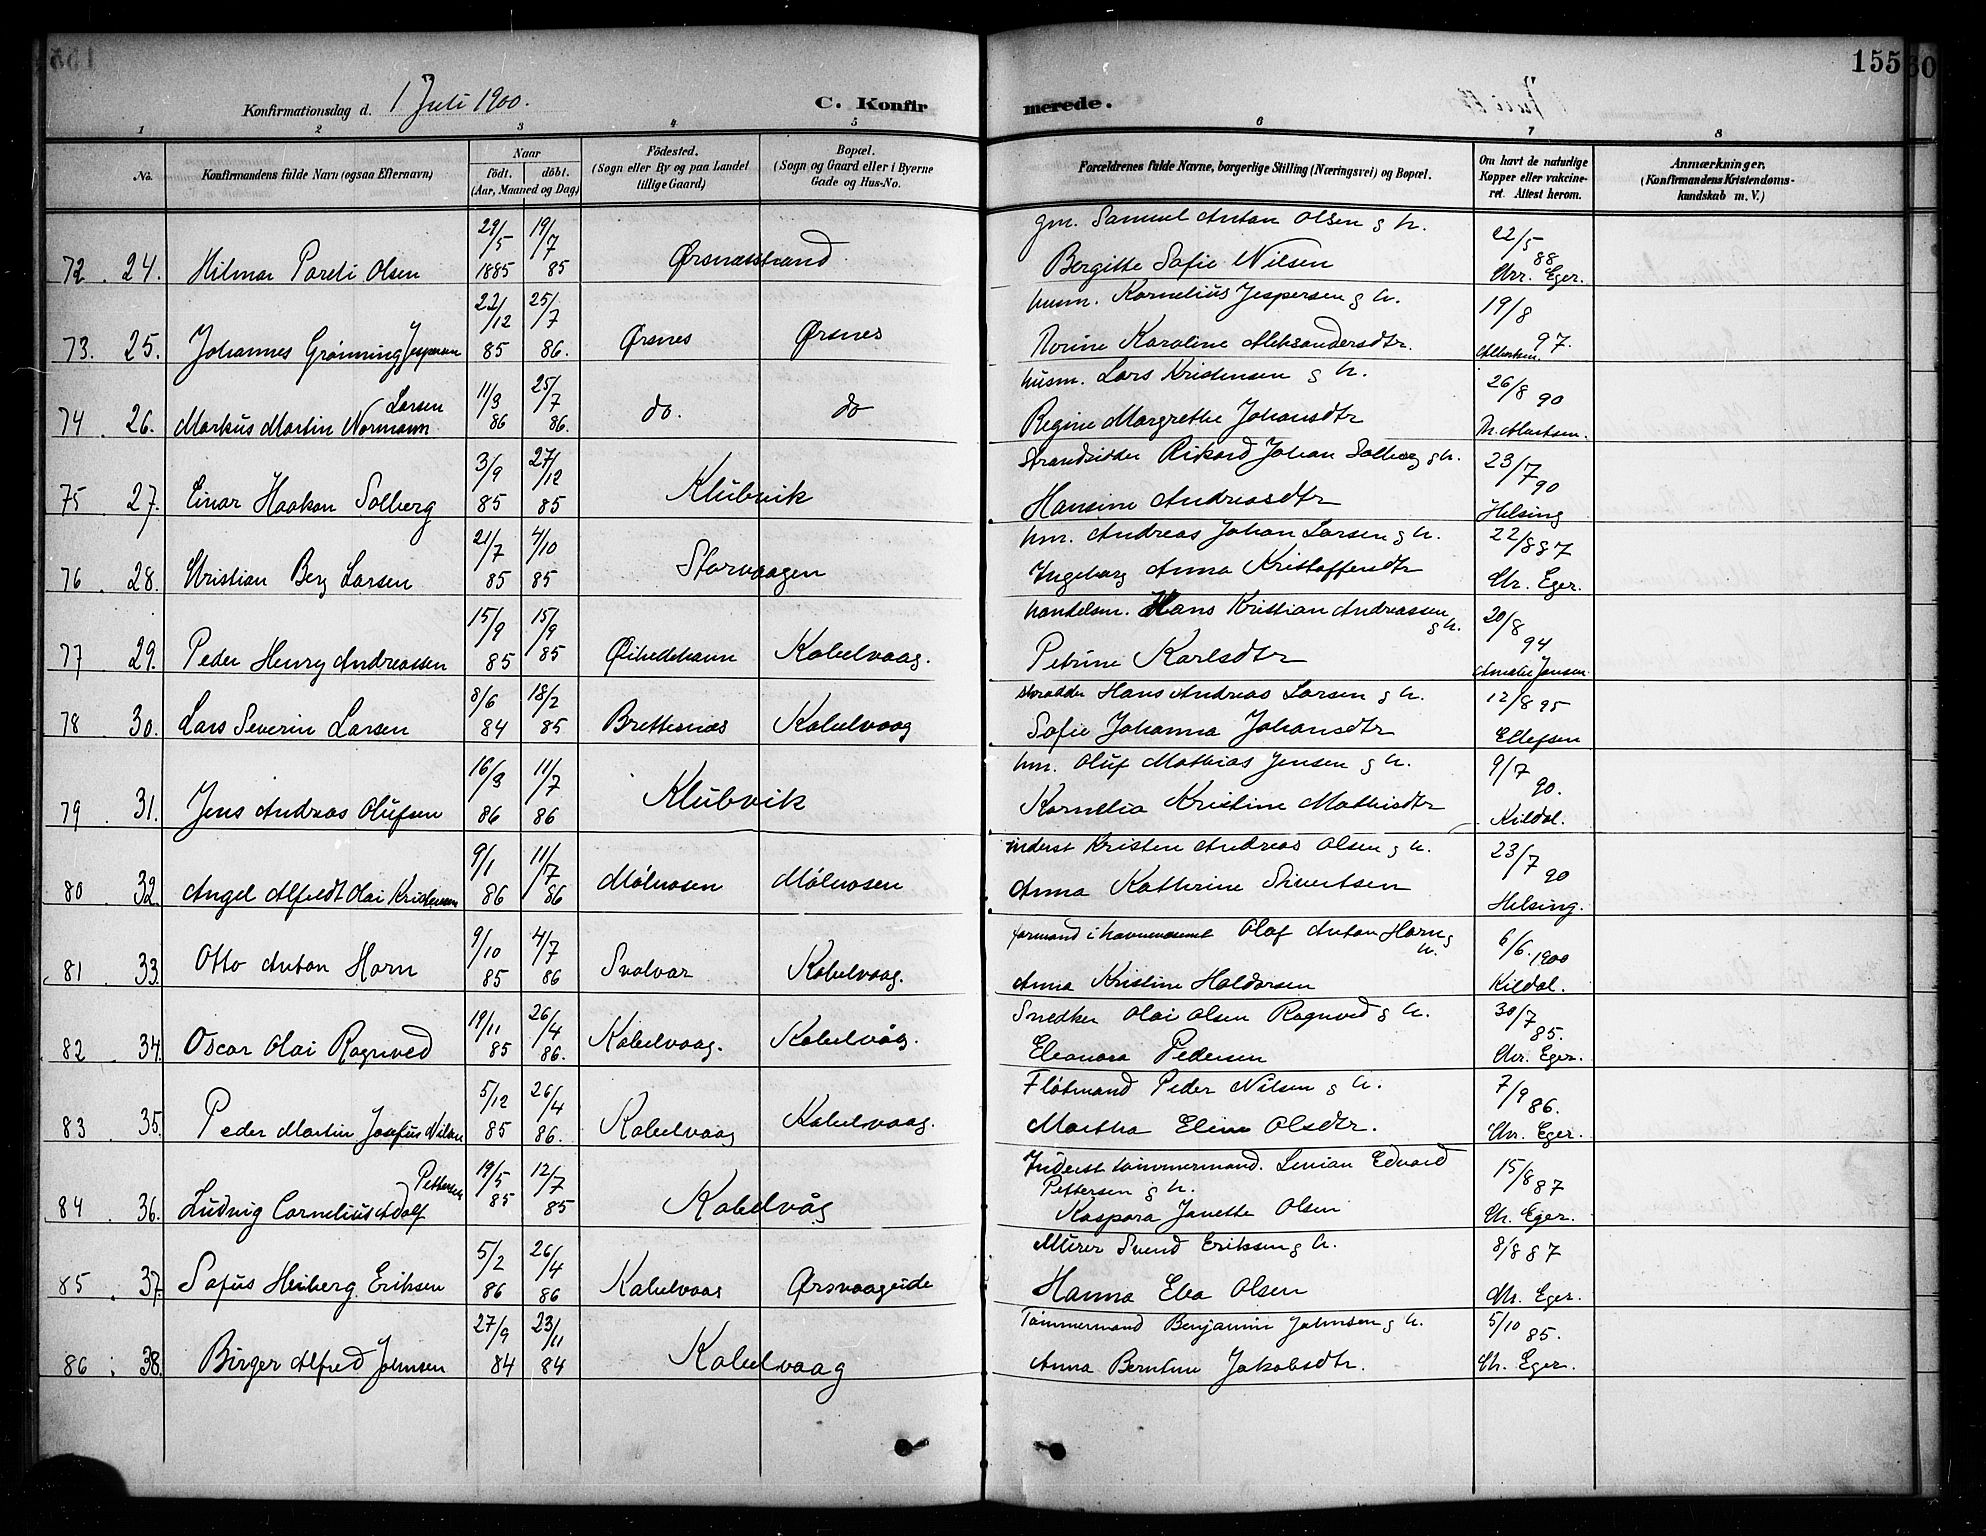 155
Konfirmationsdag d. 1 Juli 1900.
C. Konfirmerede.
1 2 3 4 5 6 7 8
No.
Konfirmandens fulde Navn (ogsaa Efternavn)
Naar
født. døbt.
(Aar, Maaned og Dag)
Fødested.
(Sogn eller By og paa Landet
tillige Gaard)
Bopæl.
(Sogn og Gaard eller i Byerne
Gade og Hus-No.
Forældrenes fulde Navne, borgerlige Stilling (Næringsvei) og Bopæl.
Om havt de naturlige
Kopper eller vakcine-
ret. Attest herom.
Anmærkninger.
(Konfirmandens Kristendoms-
kundskab m. V.)
gm. Samuel Anton Olsen g h.
72. 24. Hilmar Pareli Olsen 29/5 1885 19/7 85 Ørsnesstrand Bergitte Sofie Nilsen 22/5 88 Chr. Eger.
husm. Kornelius Jespersen g h.
73. 25. Johannes Grønning Jespersen 22/12 85 25/7 86. Ørsnes Ørsnes Norine Karoline Aleksandersdtr. 19/8 97.
husm. Lars Kristensen g h.
74. 26. Markus Martin Normann Larsen 11/3 86 25/7 86. do. do Regine Margrethe Johansdtr 26/8 90
Strandsidder Rikard Johan Solberg g h.
75. 27. Einar Haakon Solberg 3/9 85 27/12 85 Klubvik Hansine Andreasdtr 23/7 90 Helsing
hm. Andreas Johan Larsen g h.
76. 28. Christian Berg Larsen 21/7 85 4/10 85 Storvaagen Ingeborg Anna Kristoffersdtr 22/8 87 Chr. Eger.
handelsm. Hans Kristian Andreassen g h.
77 29. Peder Henry Andreassen 15/9 85 15/9 85 Kabelvaag. Petrine Karlsdtr 20/8 94 Amalie Jensen
skrædder Hans Andreas Larsen g h.
78 30. Lars Severin Larsen 8/6 84 18/2 85 Brettesnæs Kabelvaag Sofie Johanna Johansdtr 12/8 95 Ellefsen
hm. Oluf Mathias Jensen g h.
79. 31. Jens Andreas Olufsen 16/3 86 11/7 86 Klubvik Kornelia Kristine Mathisdtr 9/7 90. Kildal.
inderst Kristen Andreas Olsen g h.
80. 32. Angel Alfeldt Olai Kristensen 9/1 86 11/7 86 Mølnosen Mølnosen Anna Kathrine Sivertsen 23/7 90 Helsing.
formand i havnevæsenet Olaf Anton Horn g h.
81. 33. Otto Anton Horn 9/10 85 4/7 86 Svolvær Kabelvaag. Anna Kristine Haldorsen 6/6. 1900 Kildal.
Snedker Olai Olsen Rognved g h.
82. 34. Oscar Olai Rognved 19/11 85 26/4 86. Kabelvaag. Kabelvåg. Eleonora Pedersen 30/7 85. Chr. Eger.
Fløtmand Peder Nilsen g h.
83. 35. Peder Martin Josefus Nilsen 5/12 85 26/4 86. Kabelvaag Kabelvaag. Martha Eline Olsdtr. 7/9 86. Chr. Eger.
Inderst tømmermand. Edvard
Pettersen g h.
84. 36. Ludvig Cornelius Adolf Pettersen 19/5 85 12/7 85 Kabelvåg Kaspara Janette Olsen 15/8 87 Ch. Eger.
Murer Svend Eriksen g h.
85. 37. Sofus Heiberg Eriksen 5/2 86 26/4 86 Kabelvaag Ørsvaageide Hanna Elea Olsen 8/8 87 Chr. Eger.
Tømmermand Benjamin Johnsen g h.
86. 38. Birger Alfred Johnsen 27/9 84 23/11 84 Kabelvaag Anna Berntine Jakobsdtr. 5/10 85. Ch. Eger.